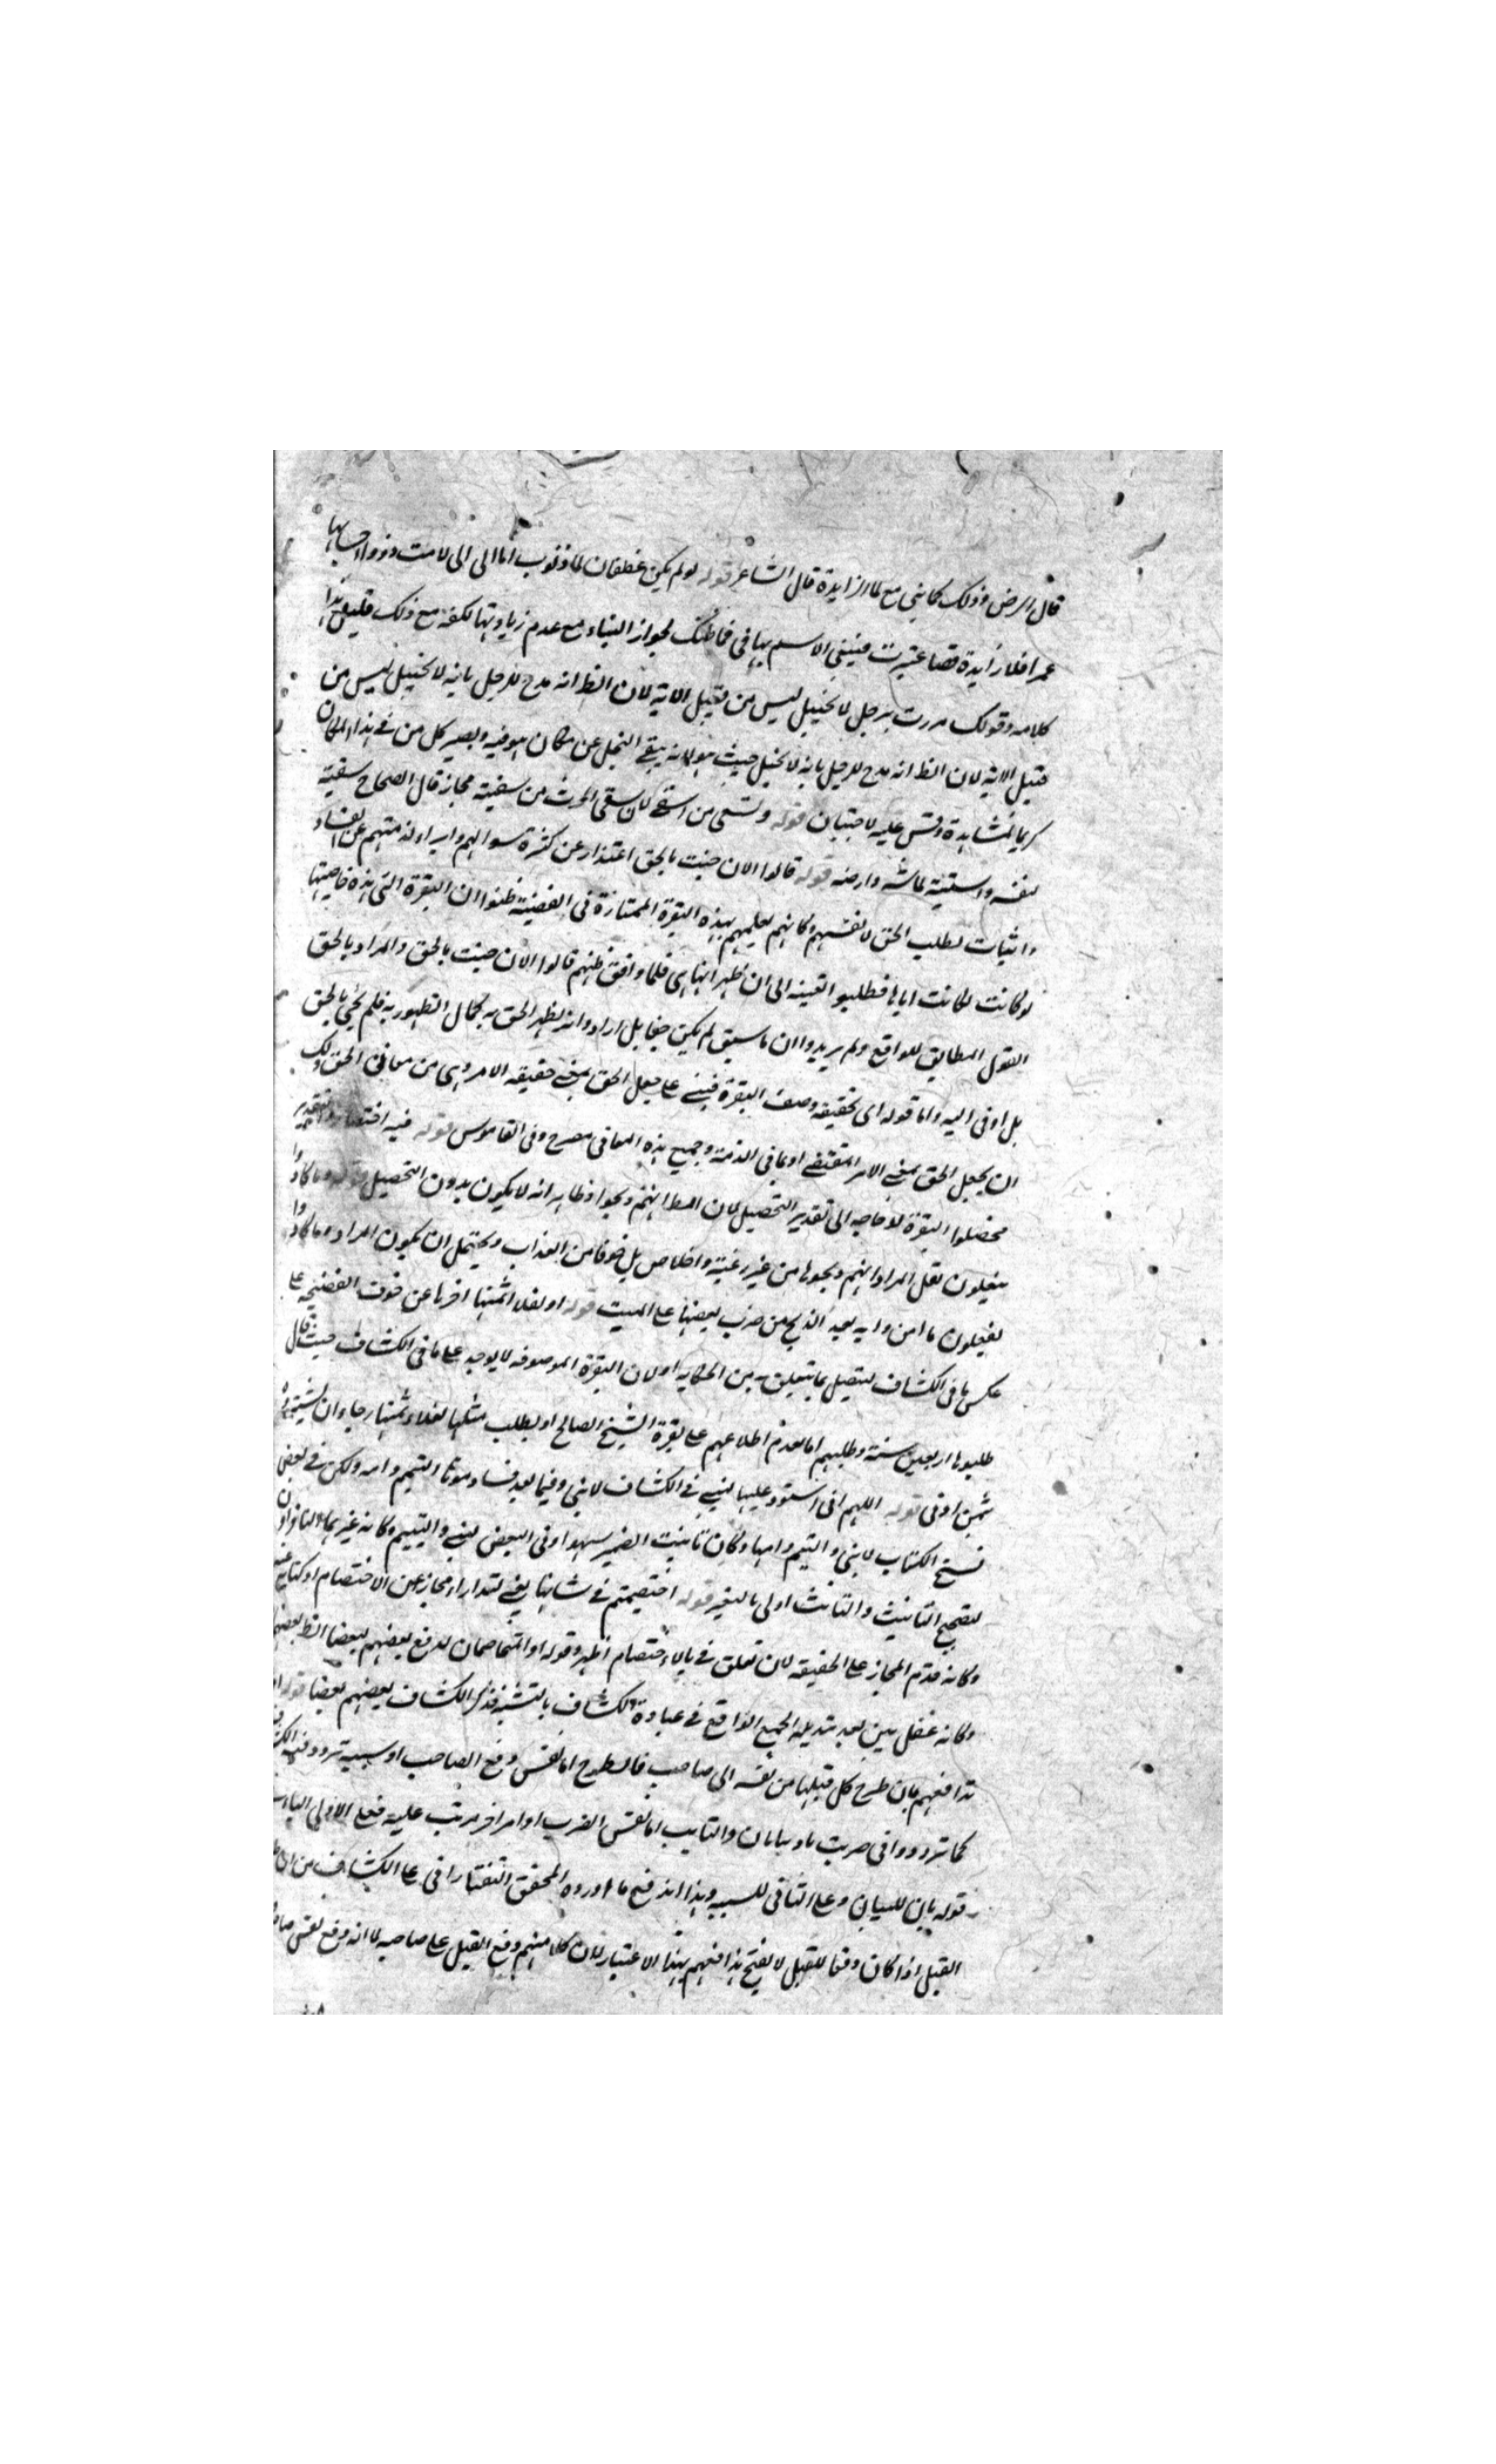 قال الرضي وذلك كما يبنى مع لا الزايدة قال الشاعر قوله لو لم يكن غطفان لا ذنوب لها الى لامت ذووا احسابها
عمرا فلا زايدة فاذا اعتبرت فبنى الاسم بها في فما ظنك بجواز البناء مع عدم زيادتها لكنه مع ذلك قليل
كلامه وقولك مررت برجل لا بخيل ليس من قبيل الاية لان الظ انه مدح للرجل بانه لا بخيل ليس من
قبيل الاية لان الظ انه مدح للرجل بانه لا بخيل حيث هو لانه ينفى البخل عن مكان هو فيه ويصير كل من في هذا المكان
كريما وقس عليه لا جبان قوله وتسقى من اسقى كان سقى الحرث من سقيته مجاز قال الصحاح سقيته
لنفسه واسقيته لماشيته وارضه قوله قالوا الان جئت بالحق اعتذار عن كثرة سوالهم وابراء لذمتهم عن
واثبات لطلب الحق لانفسهم وكانهم لعلمهم بهذه البقرة الممتازة في ظنوا ان البقرة التي هذه خاصيتها
لو كانت لكانت اياها فطلبوا التعيينه الى ان ظهر انها هي فلما وافق ظنهم قالوا الان جئت بالحق والمراد بالحق
القول المطابق للواقع ولم يريدوا ان ما سبق لم يكن حقا بل ارادوا انه لظهر الحق به كمال الظهور به فلم يجئ بالحق
بل اوفى اليه واما قوله اى بحقيقة وصف البقرة فبنى على جعل الحق بمعنى حقيقة الامر وهى من معاني الحق ولك
ان يجعل الحق بمعنى الامر المقتضى او بما في الذمة وجميع هذه المعاني مصرح وفي القاموس قوله فيه اختصار والتقدير
فحصلوا البقرة لا حاجة الى تقدير التحصيل لان الظ انهم ذبحوا وظاهر انه لا يكون بدون التحصيل قوله وما كادوا
يفعلون لعل المراد انهم ذبحوها من غير رغبة واخلاص بل خوفا من العذاب ويحتمل ان يكون المراد وما كادوا
يفعلون ما امروا به بعد الذبح من ضرب بعضها على الميت قوله او لغلاء ثمنها اخرها عن خوف الفضيحة على
عكس ما في الكشاف ليتصل بما يتعلق به من الحكاية او لان البقرة الموصوفة لا يوجد على ما في الكشاف حيث قال
طلبوها اربعين سنة وطلبهم اما لعدم اطلاعهم على بقرة الشيخ الصالح او لطلب مثلها لغلاء ثمنها رجاء ان يشتروا
بثمن اوفى قوله اللهم اني استودعكها لبنى في الكشاف لابني وفيما بعد فساوموها اليتيم وامه ولكن في بعض
نسخ الكتاب لابني واليتيم وامها وكان تانيث الضمير سهوا وفي البعض لبنى واليتيم وكانه غيرهما
لتصحيح التانيث والتانيث اولى بالتغير قوله اختصمتم في شانها يعنى تدارا مجاز عن الاختصام او كناية عنه
وكانه قدم المجاز على الحقيقة لان تعلق في بالاختصام اظهر وقوله او المتخاصمان يدفع بعضهم بعضا الظ بعضهم
وكانه غفل بين بعد تبديله الجمع الواقع في عبارة الكشاف بالتثنية فذكر الكشاف بعضهم بعضا قوله
تدافعهم بان طرح كل قتلها من نفسه الى صاحبه فالمطروح اما نفس دفع الصاحب او سببه
كما ترددوا في ضربت تاديبا بان والتاديب اما نفس الضرب او امر اخر مرتب عليه فعلى الاولى الباء
قوله بان للبيان وعلى الثاني للسببية وبهذا اندفع ما اورده المحقق التفتازاني على الكشاف من ان
القتل اذا كان دفعا للقتل لا يفتح تدافعهم بهذا الاعتبار لان كلا منهم دفع القتل على صاحبه لا انه دفع نفس